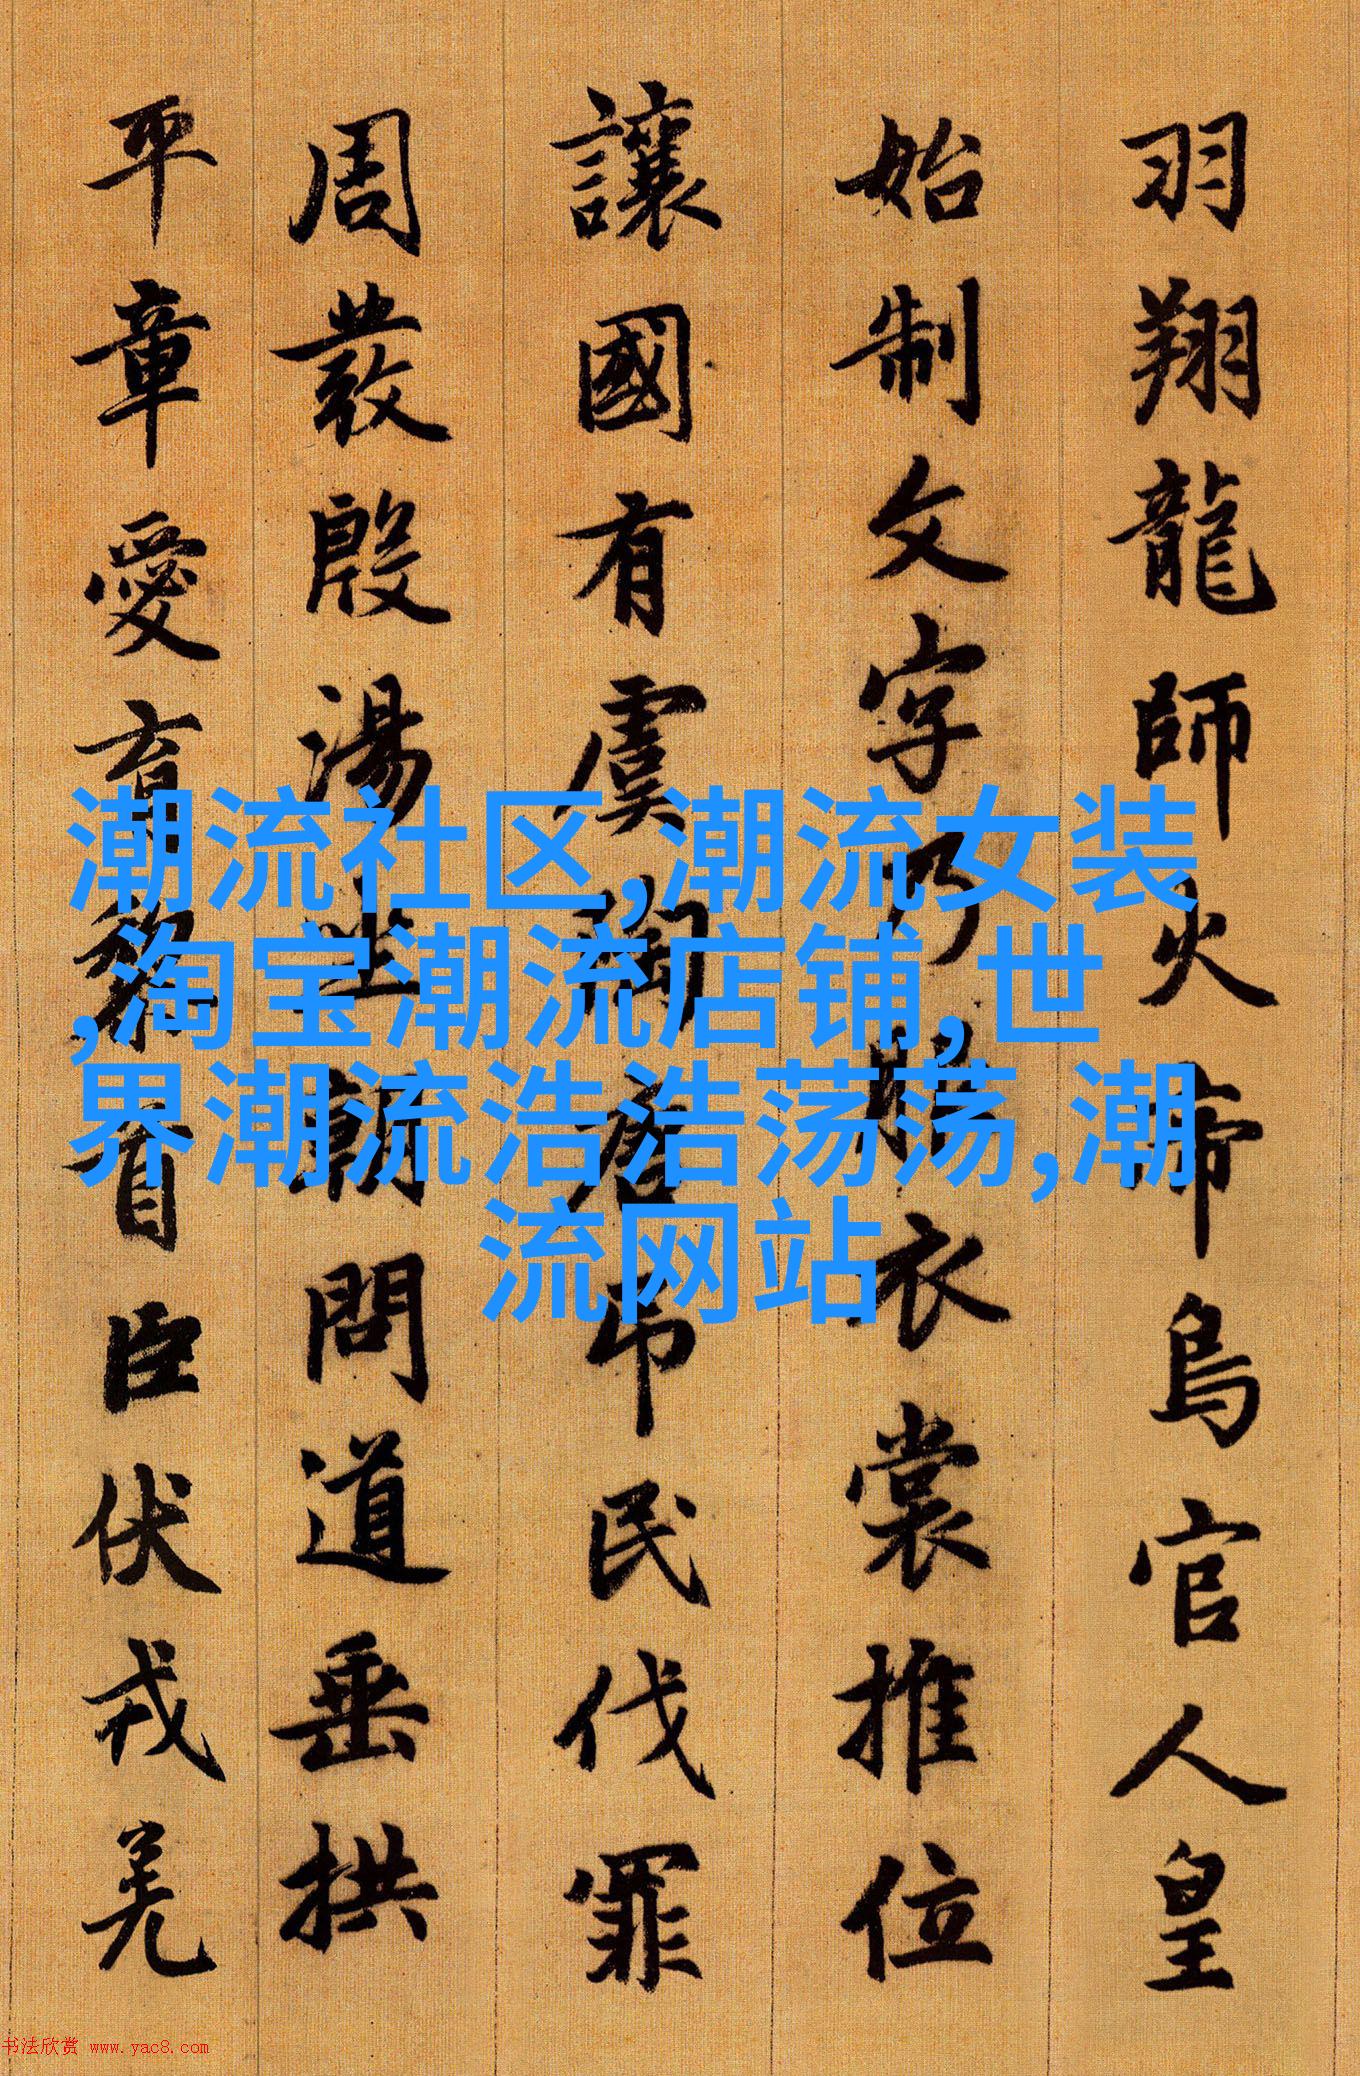 羽翔龍師火帝鳥官人皇
始制文字乃服衣裳推位
讓國有虞陶唐弔民伐罪
周發殷湯坐朝問道垂拱
平章愛育黎首臣伏戎羌
潮流社区,潮流女装
,淘宝潮流店铺,世
界潮流浩浩荡荡,潮
流网站
书法欣赏 www.yac8.com